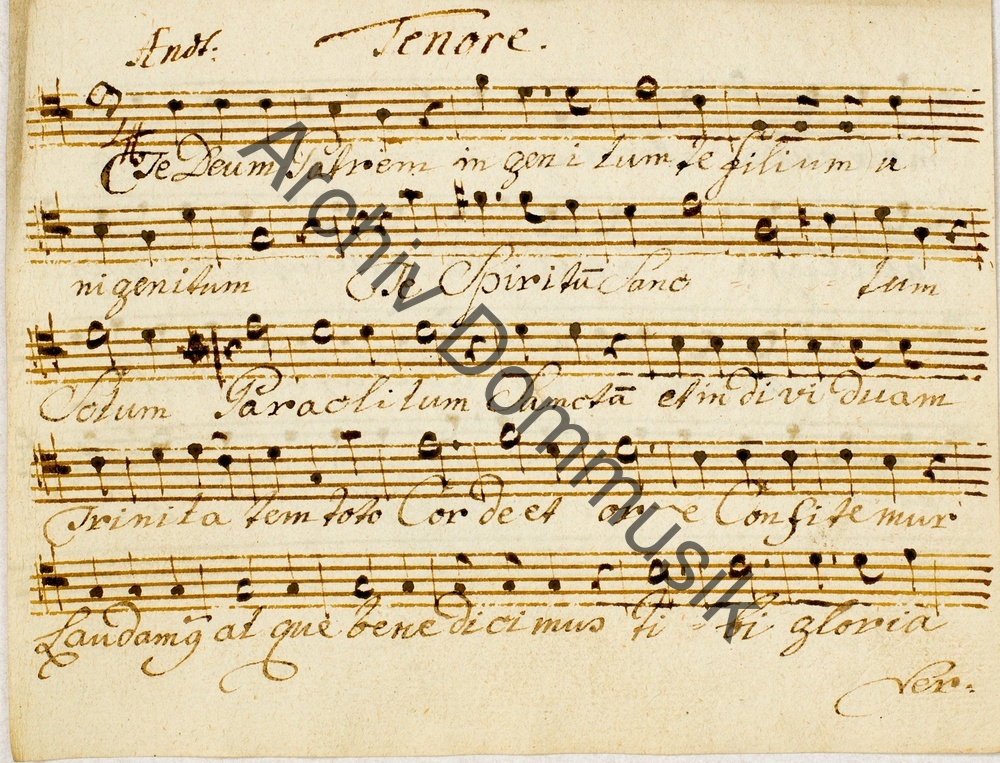 Andt: Tenore.
Te Deum Patrem in geni tum te filium u
nigenitum Te Spiritū Sanc - - tum
Totum Paraclitum Sanctā et in di vi duam
Trinita tem toto Cor de et or e Confitemur
Laudamꝰ at que bene dicimus ti - bi gloria
Ver:
Archiv Dommusik